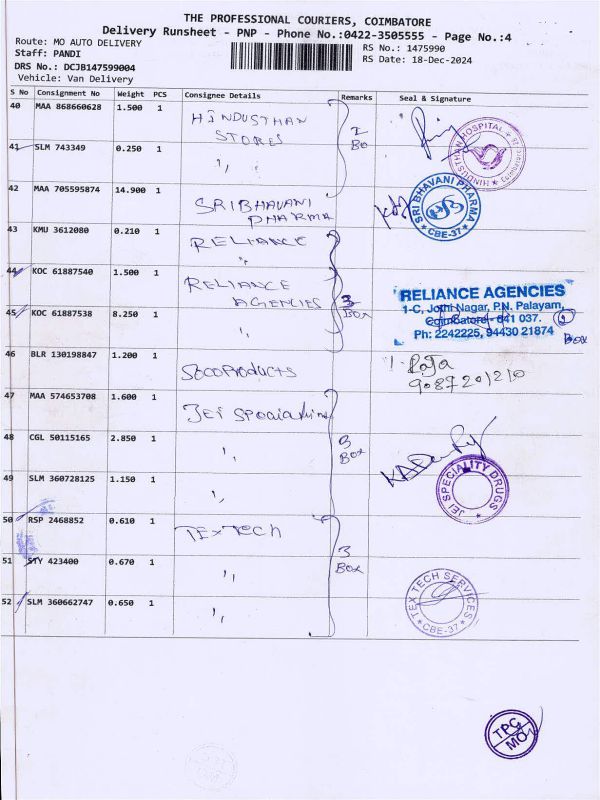 THE PROFESSIONAL COURIERS, COIMBATORE
Delivery Runsheet - PNP - Phone No.:0422-3505555 - Page No.:4
Route: MO AUTO DELIVERY
RS No.: 1475990
Staff: PANDI
RS Date: 18-Dec-2024
DRS No.: DCJB147599004
Vehicle: Van Delivery
S No Consignment No Weight PCS Consignee Details Remarks Seal & Signature
40 MAA 868660628 1.500 1 HINDUSTHAN
STORES
Box
HINDUSTHAN HOSPITAL
41 SLM 743349 0.250 1 ''
42 MAA 705595874 14.900 1 SRI BHAVANI
PHARMA
SRI BHAVANI PHARMA
★ CBE-37 ★
43 KMU 3612080 0.210 1 RELIANCE
''
44 KOC 61887540 1.500 1 RELIANCE
AGENCIES
3
Box
RELIANCE AGENCIES
1-C, Jothi Nagar, P.N. Palayam,
Coimbatore - 641 037.
Ph: 2242225, 94430 21874
Box
45 KOC 61887538 8.250 1 ''
46 BLR 130198847 1.200 1
Raja
9087201210
47 MAA 574653708 1.600 1 JEI
48 CGL 50115165 2.850 1 ''
3
Box
JEI SPECIALITY DRUGS
49 SLM 360728125 1.150 1 ''
50 RSP 2468852 0.610 1 TEXTECH
51 STY 423400 0.670 1 ''
3
Box
TEX TECH SERVICES
★ CBE-37 ★
52 SLM 360662747 0.650 1 ''
TPC
MO